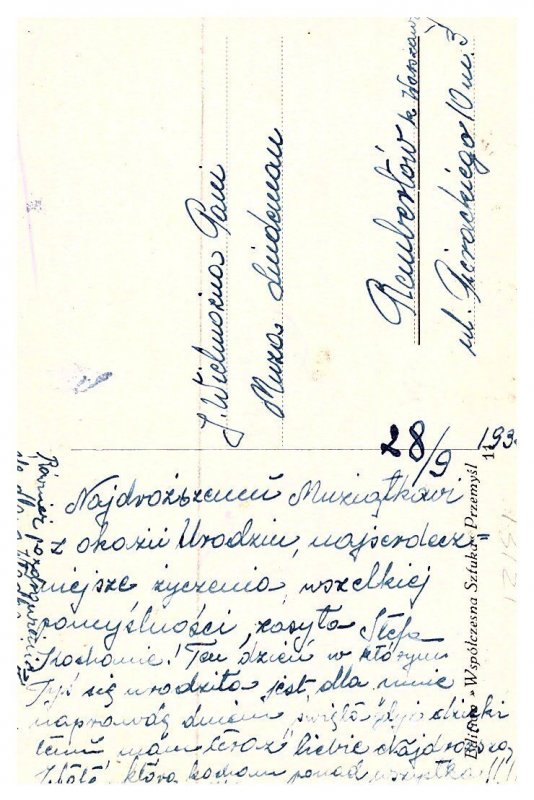 J. Wielmożna Pani
Muza Lindeman
Rembertów k. Warszawy
ul. Pierackiego 10 m. 3
28/9 193
11
Najdroższemu Muziątkowi
z okazii Urodzin, najserdecz=
niejsze życzenia, wszelkiej
pomyślności, zasyła Stefa
Kochanie! Ten dzień w którym
Tyś się urodziła jest dla mnie
naprawdę dniem święta gdyż dzięki
temu mam teraz Ciebie Najdroższą
która kocham ponad wszystko!!!
» Współczesna Sztuka « Przemyśl